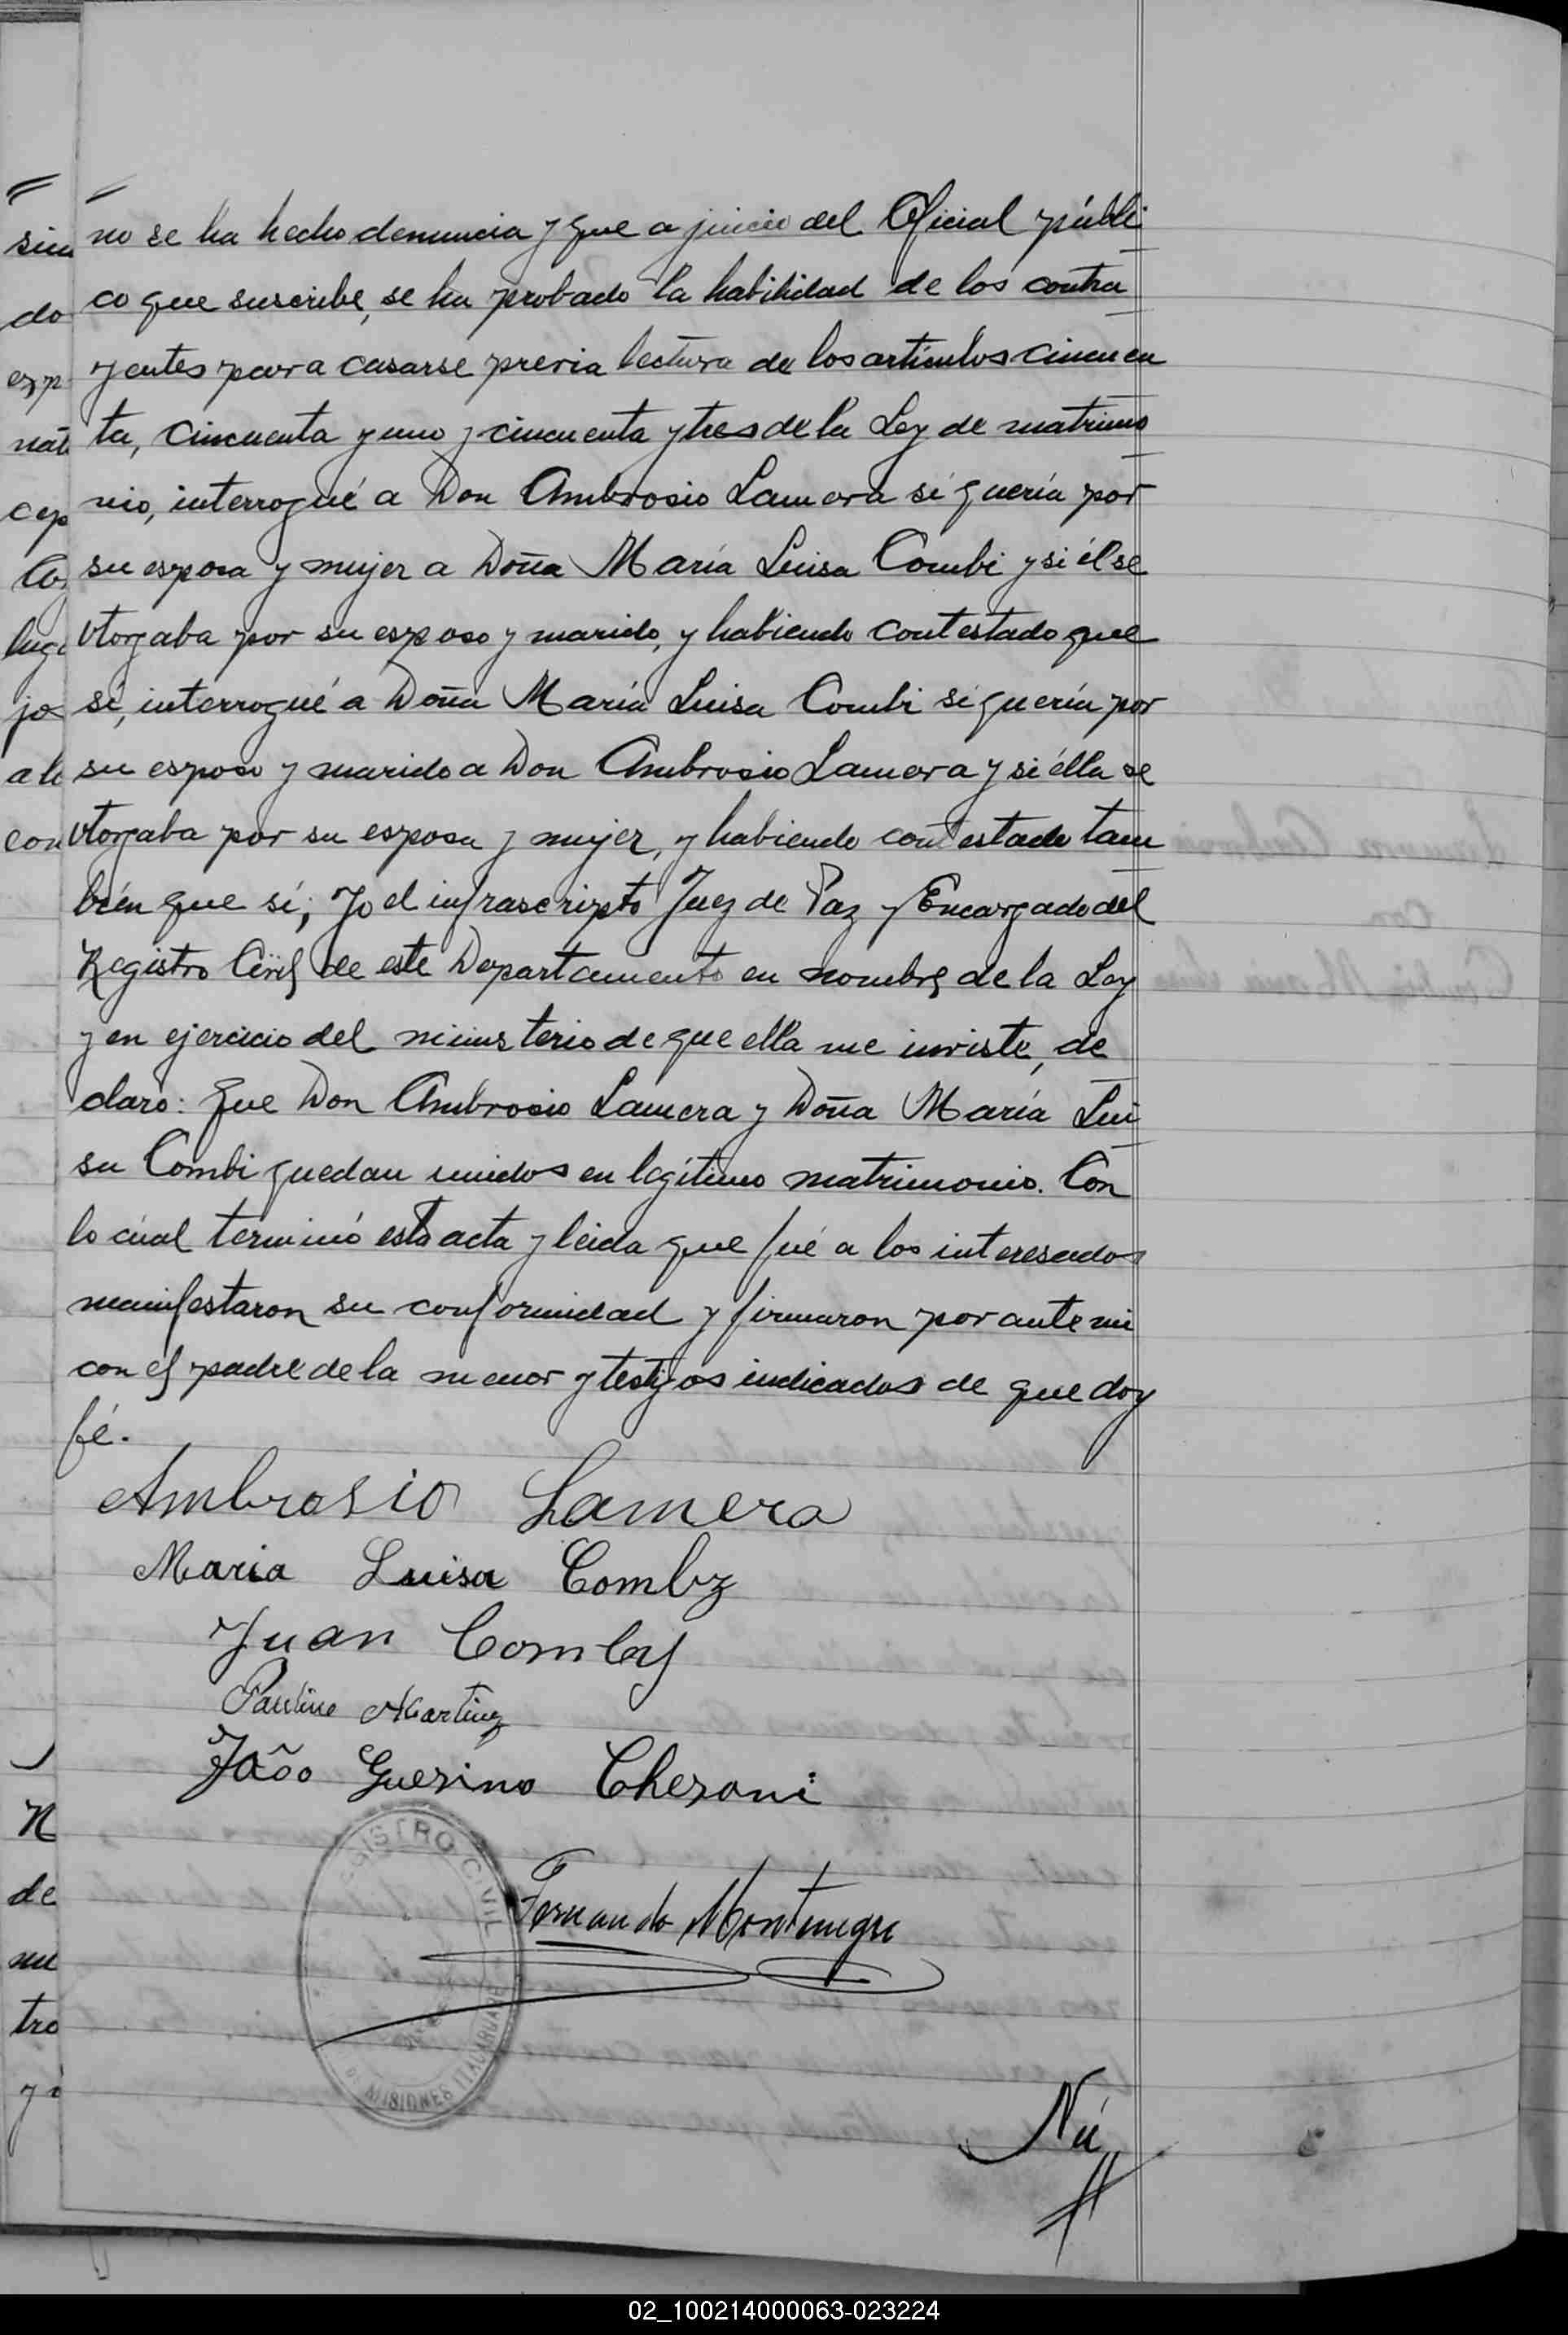 no se ha hecho denuncia y que a juicio del Oficial públi
co que suscribe, se ha probado la habilidad de los contra
yentes para casarse previa lectura de los artículos cincuen
ta, cincuenta y uno y cincuenta y tres de la Ley de matrimo
nio, interrogué a Don Ambrosio Lamera si quería por
su esposa y mujer a Doña María Luisa Combi y si él se
otorgaba por su esposo y marido, y habiendo contestado que
sí, interrogué a Doña María Luisa Combi si quería por
su esposo y marido a Don Ambrosio Lamera y si élla se
otorgaba por su esposa y mujer, y habiendo contestado tam
bién que sí; Yo el infrascripto Juez de Paz y Encargado del
Registro Civil de este Departamento en nombre de la Ley
y en ejercicio del ministerio de que ella me inviste, de
claro: que Don Ambrosio Lamera y Doña María Lui
sa Combi quedan unidos en legítimo matrimonio. Con
lo cúal terminó esta acta y leida que fué a los interesados
manifestaron su conformidad y firmaron por ante mi
con el padre de la menor y testigos indicados de que doy
fé.
Ambrosio Lamera
Maria Luisa Comby
Juan Comby
Paulino Martinez
João Guerino Cheroni
REGISTRO CIVIL
MISIONES ITACARUARE
Fernando Montenegro
Nú
02_100214000063-023224